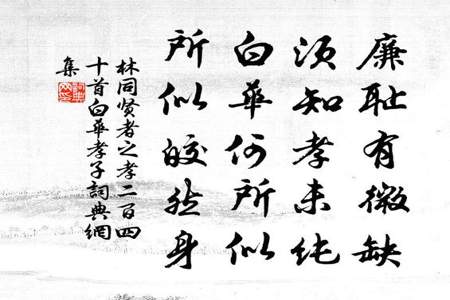 廉耻有微缺
须知孝未纯
白华何所似
所似皎然身
林同贤者之孝二百四
十首白华孝子词典网
集